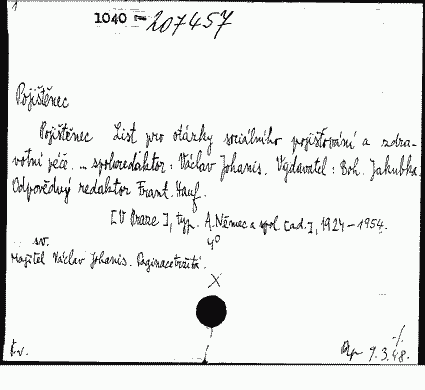 1040 - 207457
Pojištěnec
Pojištěnec List pro otázky sociálního pojišťování a zdra-
votní péče. … spoluredaktor: Václav Johanis. Vydavatel: Boh. Jakubka.
Odpovědný redaktor Frant. Hauf.
[V Praze], typ. A. Němec a spol. [ad.], 1924-1954.
sv. 4°
Majitel Václav Johanis. Paginace
X
9.3.48.